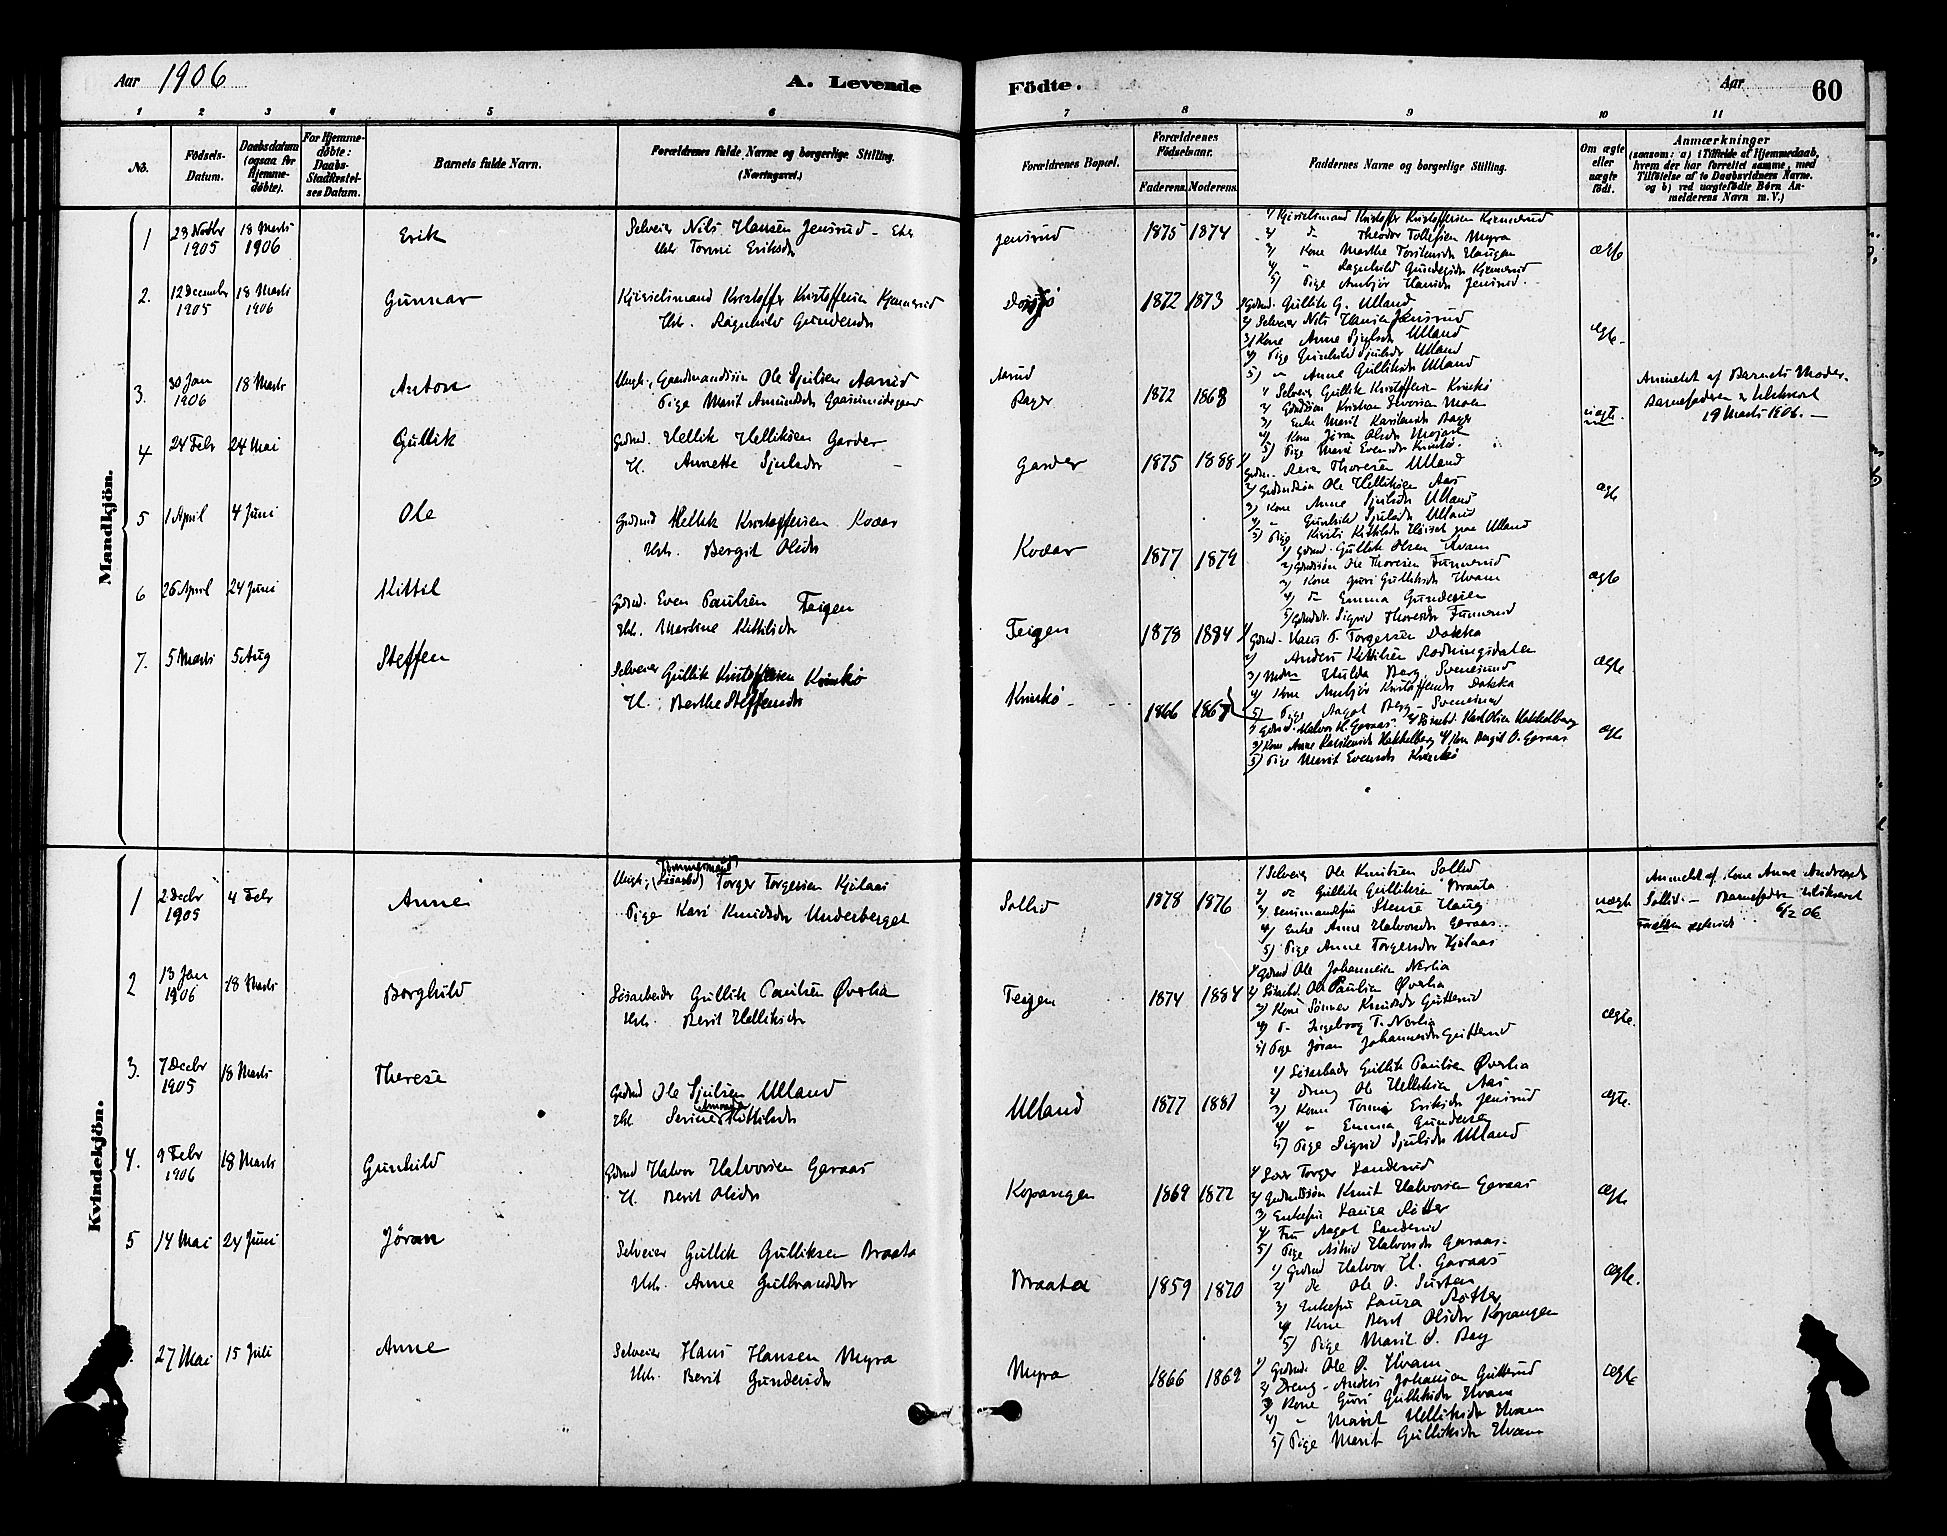 Aar 1906
A. Levende Födte.
Aar
60
1 2 3 4 5 6 7 8 9 10 11
No.
Födsels-Datum.
Daabsdatum (ogsaa for Hjemme-döbte).
For Hjemme-döbte: Daabs-Stadfæstel-ses Datum.
Barnets fulde Navn.
Forældrenes fulde Navne og borgerlige Stilling.
(Næringsvei.)
Forældrenes Bopæl.
Forældrenes Födselsaar.
Faderens. Moderens.
Faddernes Navne og borgerlige Stilling.
Om ægte eller uægte födt.
Anmærkninger
(saasom: a) i Tilfælde af Hjemmedaab,
hvem der har forrettet samme, med
Tilföielse af to Daabsvidners Navne.
og b) ved uægtefödte Börn An-
melderens Navn m. V.)
Mandkjön.
1 23 Novbr 1905 18 Marts 1906 Erik
Selveier Nils Hansen Jensrud
Tomine Eriksdr
Jensrud 1875 1874
1/ Kristoffer Kristoffersen Kjennerud
2/ Theodor Tollefsen Myra
3/ Kone Marthe Torstensdr Haugen
4/ Ragnhild Gundersdr Kjennerud
5/ Pige Anbjør Hansdr Jensrud
ægte
2. 12 December 1905 18 Marts 1906 Gunnar
Kristoffer Kristoffersen Kjennerud
Hst. Ragnhild Gundersdr
1872 1873
1/ Gdmd. Gullik G. Ulland
2/ Selveier Nils Hansen Jensrud
3/ Kone Anne Sjulsdr Ulland
4/ Pige Gunhild Sjulsdr Ulland
5/ " Anne Gulliksdr Ulland
ægte
3. 30 Jan 1906 18 Marts Anton
Ungk., Gaardmandssøn Ole Sjulsen Aasrud
Pige Marit Amundsdr
Aasrud
Rager
1872 1868
1/ Selveier Gullik Kristoffersen Krinkø
2/ Gdmdssøn Kristian Halvorsen Moen
3/ Enke Marit Karstensdr Rager
4/ Kone Jøran Olsdr
5/ Pige Marie Evensdr Krinkø.
uægte
Anmeldt af Barnets Moder.
Barnefaderen er tilskrevet
19 Marts 1906.
4 24 Febr 24 Mai Gullik
Gdmd. Hellik Helliksen Garder
H. Annette Sjulsdr
Garder 1875 1888
Gdmd. Reier Thoresen Ulland
2/ Gdmdssøn Ole Helliksen Aas
3/ Kone Anne Sjulsdr Ulland
4/ " Gunhild Sjulsdr Ulland
5/ Pige Kirsti Kittilsdr
ægte
5 1 April 4 Juni Ole
Gdmd Hellik Kristoffersen Kodar
Hst. Bergit Olsdr
Kodar 1877 1879
1/ Gdmd. Gullik Olsen Hvam
2/ Gdmdssøn Ole Thoresen Funnerud
3/ Kone Guri Gulliksdr Hvam
4/ Do Emma Gundersen
5/ Sigrid Thoresdr Funnerud
ægte
6 26 April 24 Juni Kittil
Gdmd. Even Paulsen Teigen
Hst. Martine Kittilsdr
Teigen 1878 1884
1/ Gdmd. Hans T. Torgersen Dokka
2/ Anders Kittilsen Rødningsdalen
3/ Hulda Berg, Svenesund
4/ Kone Anbjør Kristoffersdr Dokka
5/ Pige Aagot Berg - Svenesund
ægte
7. 5 Marts 5 Aug Steffen
Selveier Gullik Kristoffersen Krinkø
H. Berthe Steffensdr
Krinkø 1866 1867
1/ Gdmd. Halvor H. Garaas. 2/ Karl Olsen Hakkelberg
3/ Kone Anne Karstensdr Hakkelberg 4/ Kone Bergit O. Garaas
5/ Pige Marit Evensdr Krinkø
ægte
Kvindekjön.
1 2 Decbr 1905 4 Febr Anne
Ungk., (Løsarbd) Tømmermand Torger Torgersen Kjølaas
Pige Kari Knudsdr Underberget
Sollid 1878 1876
1/ Selveier Ole Knutsen Sollid
2/ do Gullik Gulliksen Braata
3/ Stense Haug
4/ Enke Anne Halvorsdr Garaas
5/ Pige Anne Torgersdr Kjølaas
uægte
Anmeldt af Kone Anne Andreasdr
Sollid. — Barnefader tilskrevet
6/2 06
2 13 Jan 1906 18 Marts Borghild
Løsarbeider Gullik Paulsen Øverlia
Hst. Berit Helliksdr
Teigen 1874 1884
1/ Gdmd Ole Johannesen Nerlia
2/ Løsarbd. Ole Paulsen Øverlia
3/ Kone Gønner Knudsdr Gutterud
4/ Do Ingeborg T. Nerlia
5/ Pige Jøran Johannesdr Gutterud
ægte.
3. 7 Decbr 1905 18 Marts Therese
Gdmd Ole Sjulsen Ulland
Hst Serine Amanda Kittilsdr
Ulland 1877 1881
1/ Løsarbeider Gullik Paulsen Øverlia
2/ Dreng Ole Helliksen Aas
3/ Kone Tomine Eriksdr Jensrud
4/ " Emma Gundersen
5/ Pige Sigrid Sjulsdr Ulland
ægte.
4. 9 Febr 1906 18 Marts Gunhild
Gdmd Halvor Halvorsen Garaas
H. Berit Olsdr
Kopangen 1869 1872
1/ Torger Landerud
2/ Gdmdssøn Knut Halvorsen Garaas
3/ Enkefru Laura Røtter
4/ Fru Aagot Landerud
5/ Pige Astrid Halvorsdr Garaas
ægte
5 14 Mai 24 Juni Jøran
Selveier Gullik Gulliksen Braata
Hst. Anne Gulbrandsdr
Braata 1859 1870
1/ Gdmd Halvor H. Garaas
2/ do Ole O. Surten
3/ Enkefru Laura Røtter
4/ Kone Berit Olsdr Kopangen
5/ Pige Marit O. Bay
ægte.
27 Mai 15 Juli Anne
Selveier Hans Hansen Myra
Hst. Berit Gundersdr
Myra 1866 1869
1/ Gdmd. Ole O. Hvam
2/ Dreng - Anders Johansen Gutterud
3/ Kone Guri Gulliksdr Hvam
4/ " Marit Helliksdr Hvam
5/ Pige Marit Gulliksdr Hvam
ægte